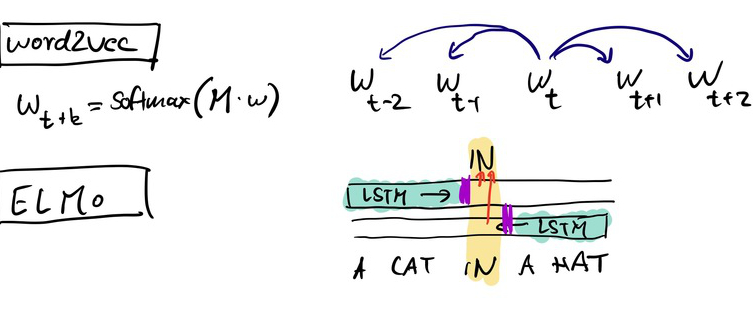 word2vec
W_{t+k} = Softmax(M·w)
W_{t-2} W_{t-1} W_t W_{t+1} W_{t+2}
ELMo
IN
LSTM →
← LSTM
A CAT IN A HAT